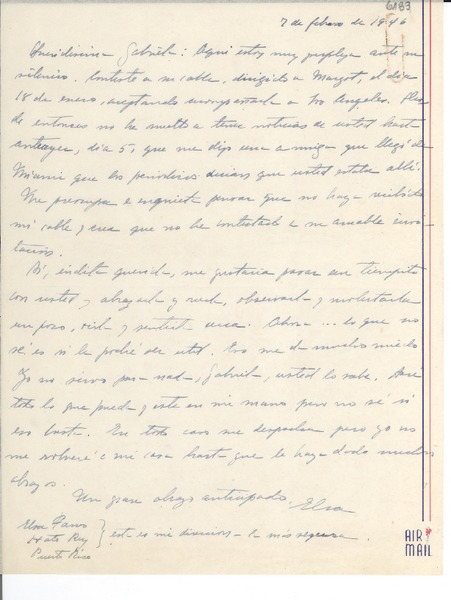 6183
7 de febrero de 1946
Queridísima Gabriela: Aquí estoy muy perpleja ante su
silencio. Contesté a su cable, dirigido a Margot, el día
18 de enero, aceptando acompañarla a Los Angeles. Des
de entonces no he vuelto a tener noticias de usted hasta
anteayer, día 5, que me dijo una amiga que llegó de
Miami que los periódicos decían que usted estaba allí.
Me preocupa e inquieta pensar que no haya recibido
mi cable y crea que no he contestado a su amable invi-
tación.
Sí, indita querida, me gustaría pasar un tiempito
con usted y abrazarla y verla, observarla y molestarla
un poco, oirla y sentirla cerca. Ahora... lo que no
sé es si le podré ser útil. Eso me da mucho miedo.
Yo no sirvo para nada, Gabriela, usted lo sabe. Haré
todo lo que pueda y esté en mi mano pero no sé si
eso basta. En todo caso me despacha pero yo no
me volveré a mi casa hasta que le haya dado muchos
abrazos.
Un gran abrazo anticipado, Elsa
Elsa Fano
Hato Rey
Puerto Rico
} esta es mi dirección la más segura.
AIR
MAIL